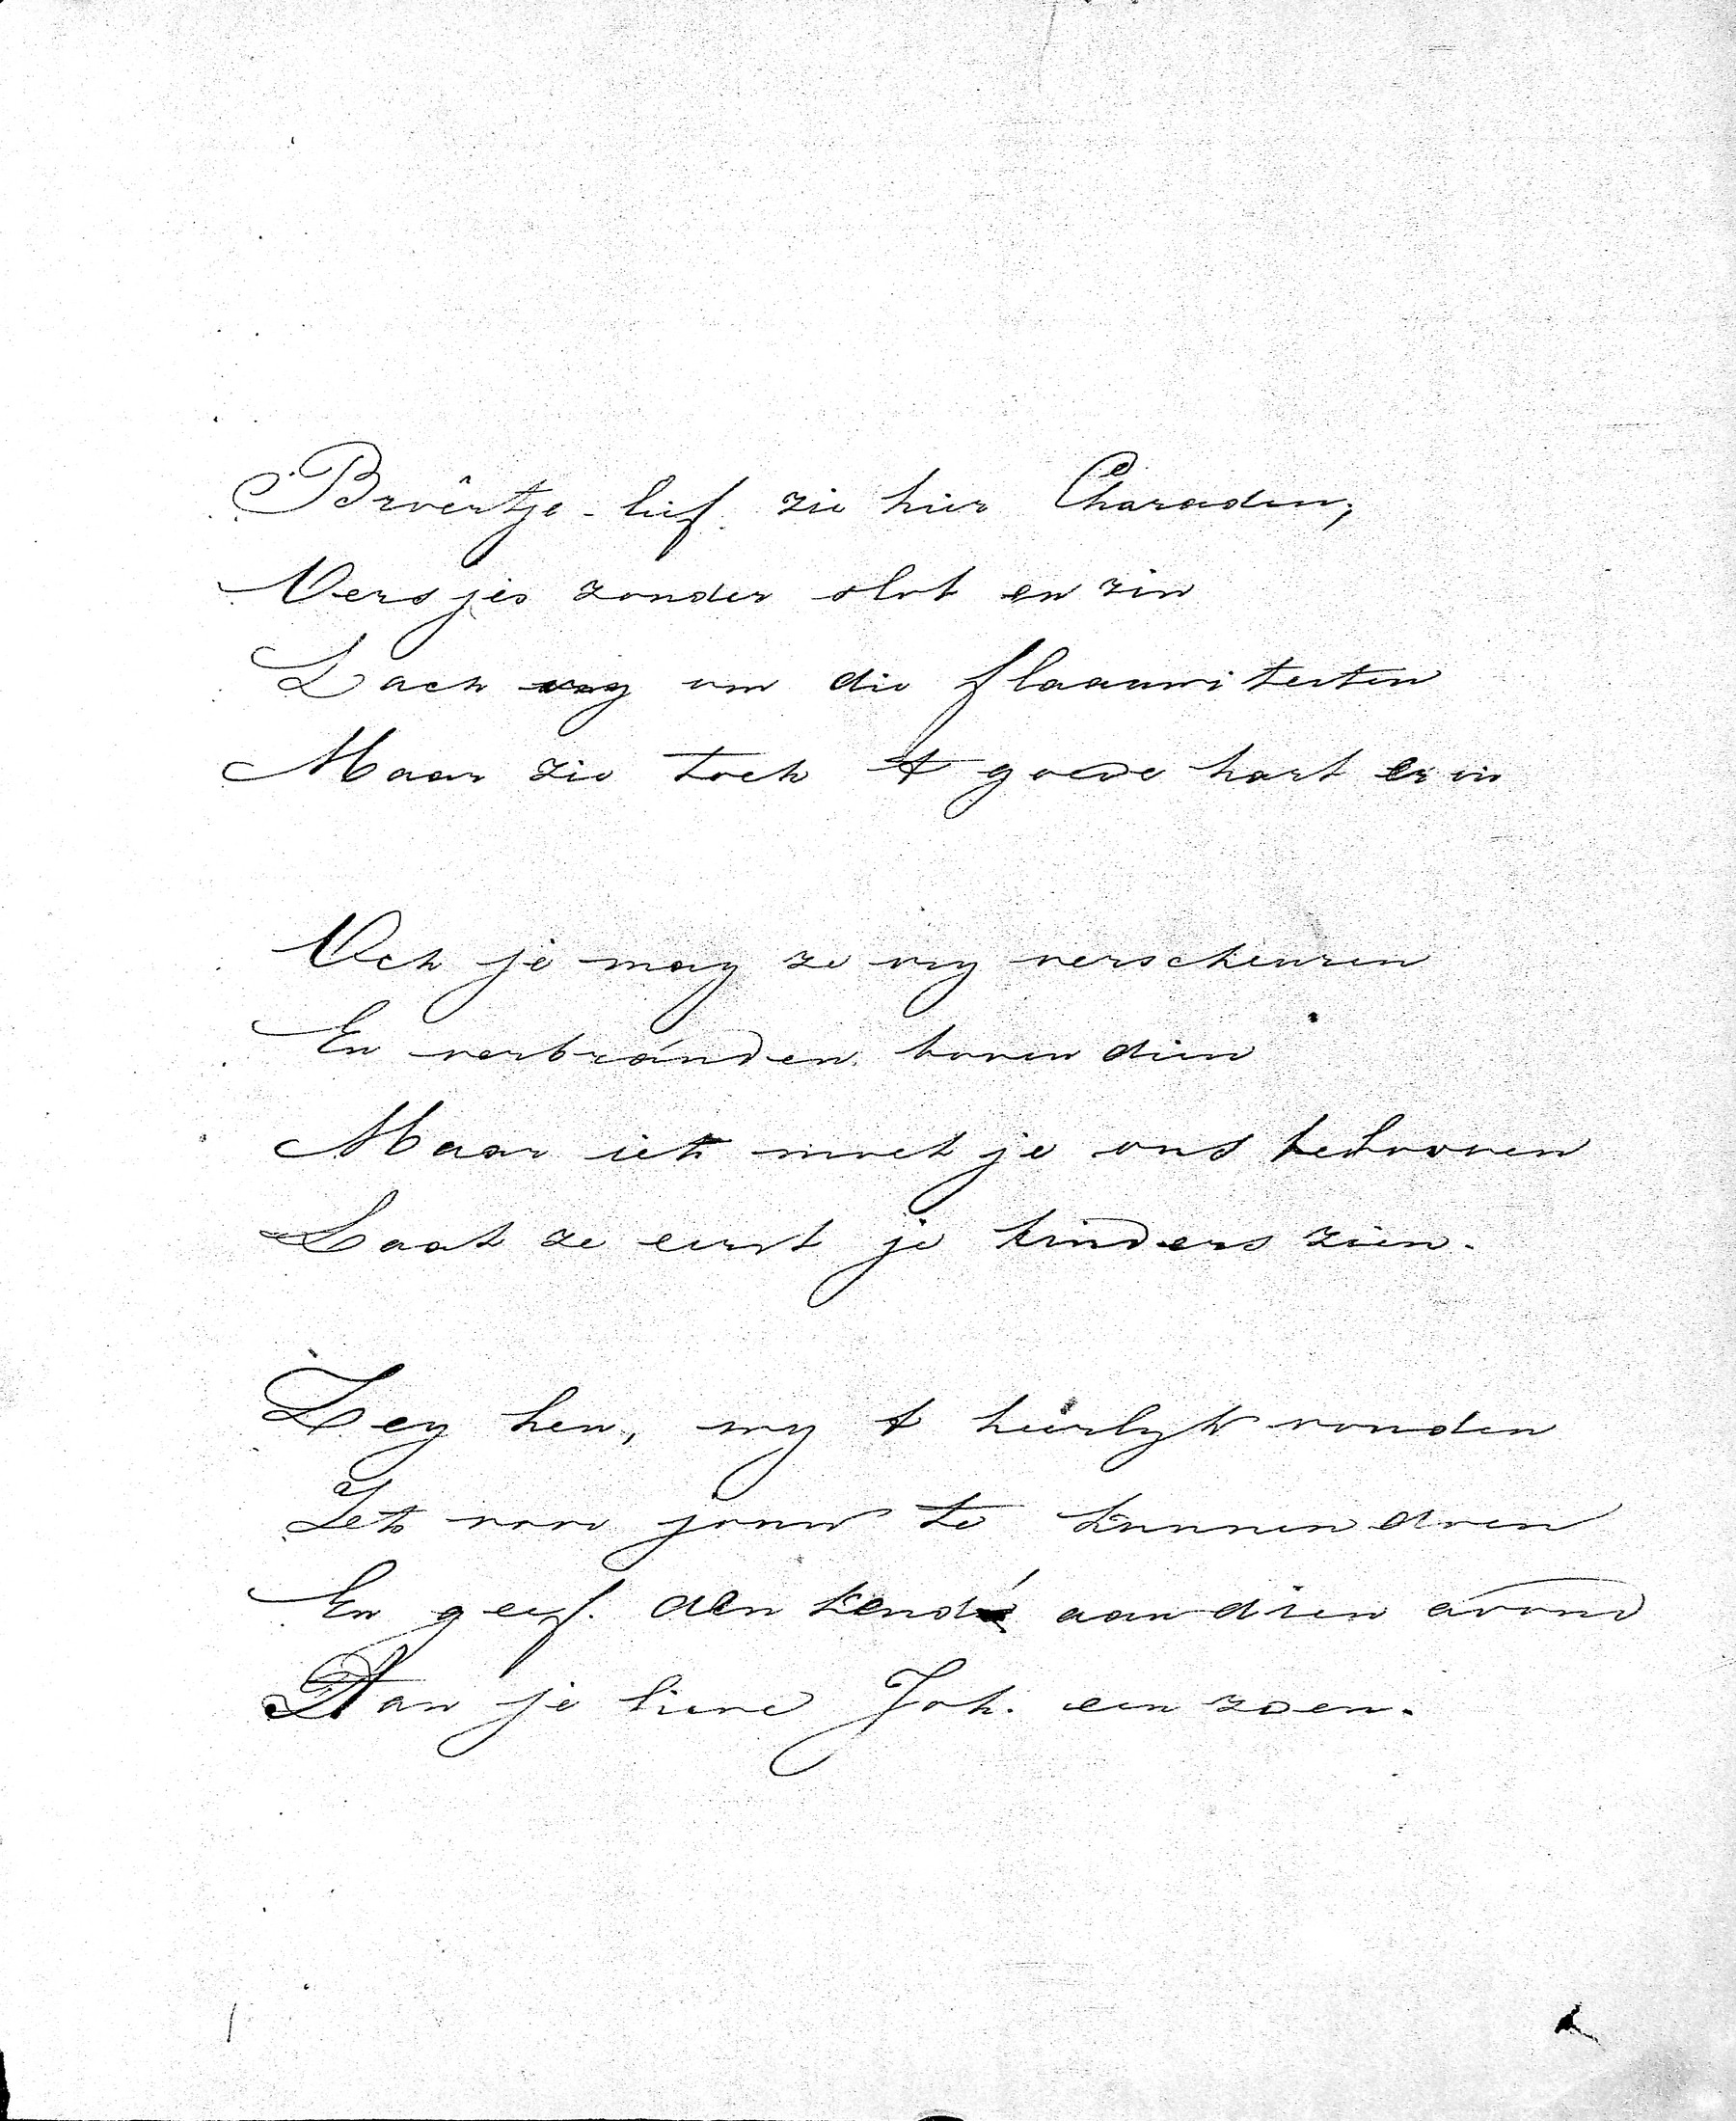 Broêrtje-lief. zie hier Charaden,
Versjes zonder slot en zin
Lach vry om die flaauwiteiten
Maar zie toch 't goede hart er in
Och je mag ze vry verscheuren
En verbranden bovendien
Maar iets moet je ons beloven
Laat ze eerst je kinders zien.
Zeg hen, wy 't heerlyk vonden
Iets voor jouw te kunnen doen
En geef. den aan dien avond
Aan je lieve Joh. een zoen.